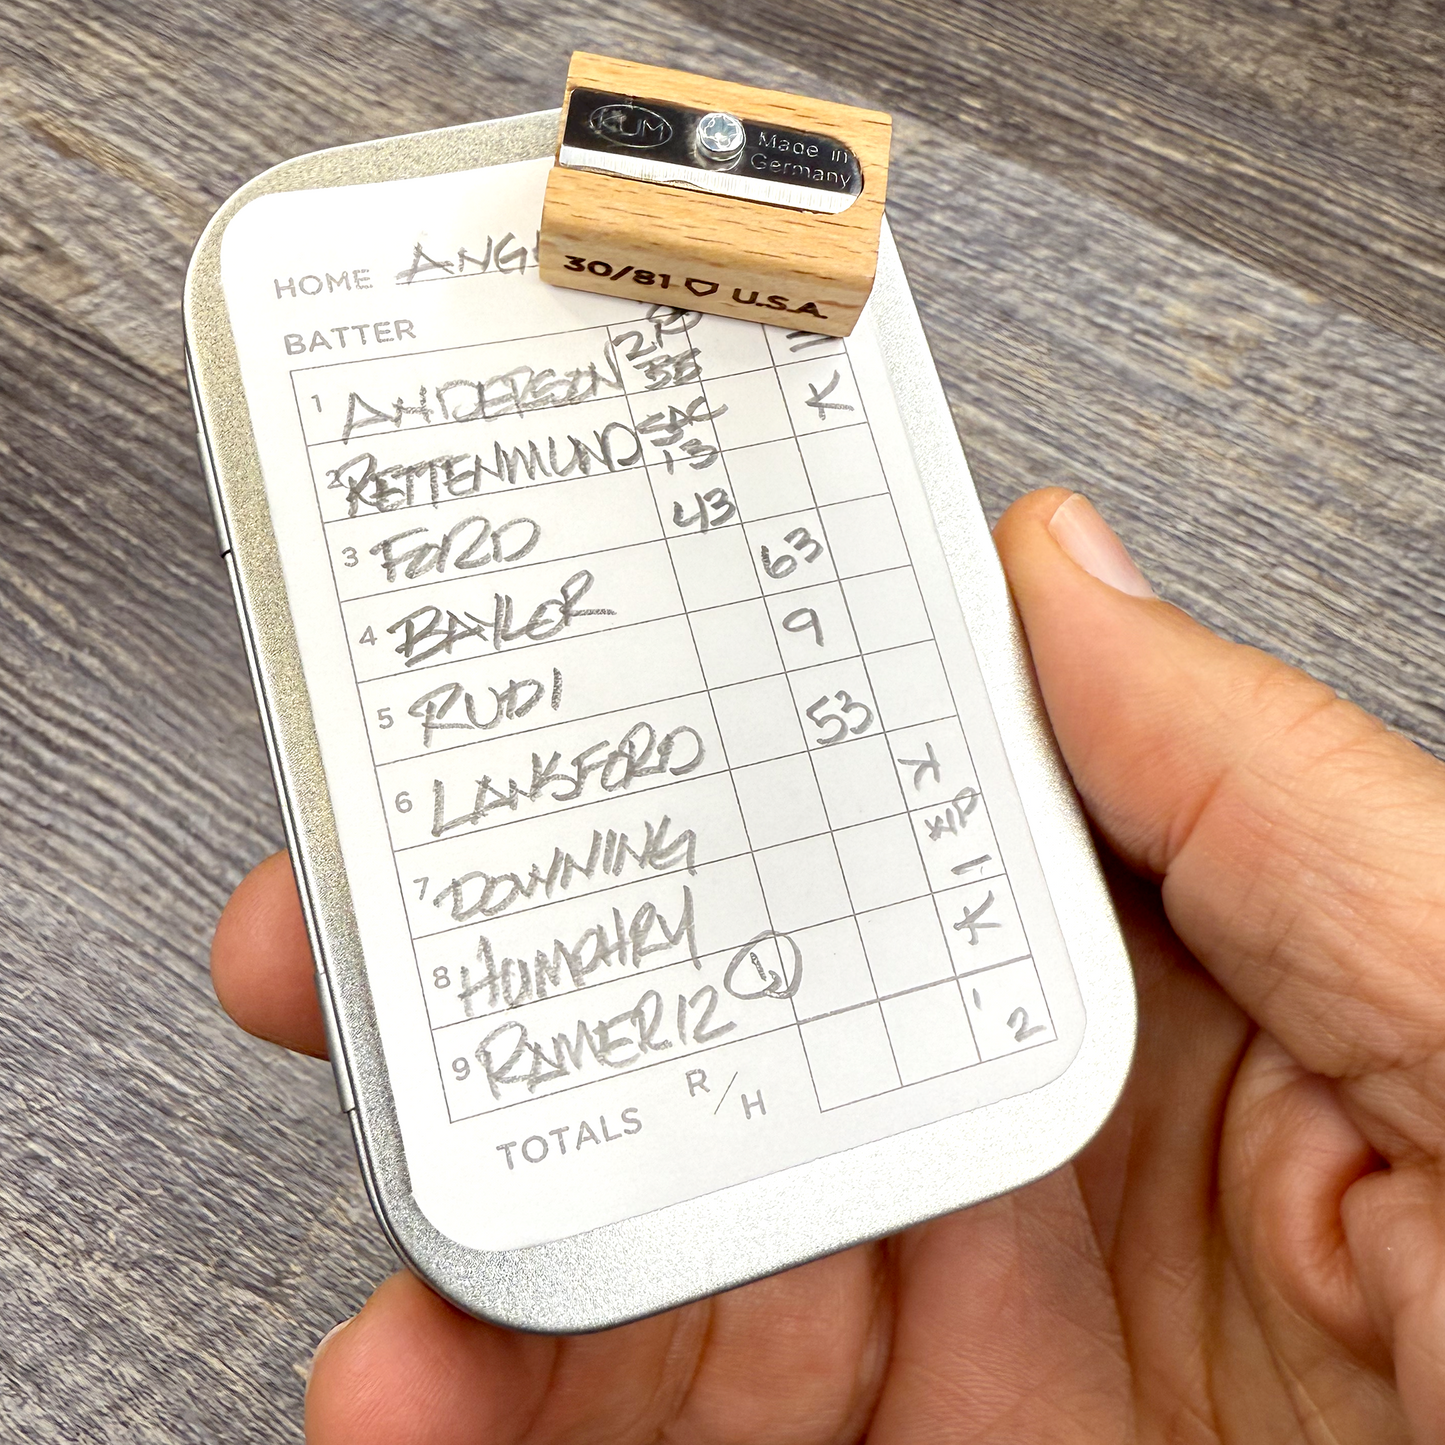 KUM
Made in
Germany
30/81 U.S.A.
HOME ANG
BATTER
1 ANDERSON
K
2 RETTENMUND SAC
13
3 FORD 43
4 BAYLOR 63
5 RUDI 9
6 LANSFORD 53
7 DOWNING K
8 HUMPHRY
9 RAMEREZ 1 K
TOTALS R/H 2